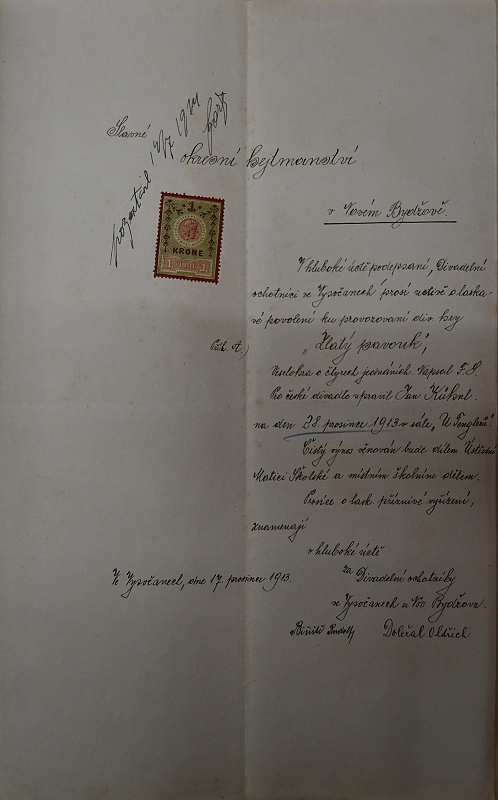 Slavné
okresní hejtmanství
v Novém Bydžově.
1
KRONE
1 1910 1
V hluboké úctě podepsaní, Divadelní
ochotníci ve Vysočanech prosí uctivě o laska-
vé povolení ku provozování div. hry
"Zlatý pavouk",
Veselohra o čtyrech jednáních. Napsal F. S.
Pro české divadlo upravil Jan Kühnl.
na den 28. prosince 1913 v sále, "U Fenglerů."
Čistý výnos věnován bude dílem Ústřední
Matici Školské a místním školním dětem.
Prosíce o lask. příznivé vyřízení,
znamenají
v hluboké úctě
Ve Vysočanech, dne 17. prosince 1913.
za Divadelní ochotníky
ve Vysočanech u Nov. Bydžova.
Doležal Oldřich